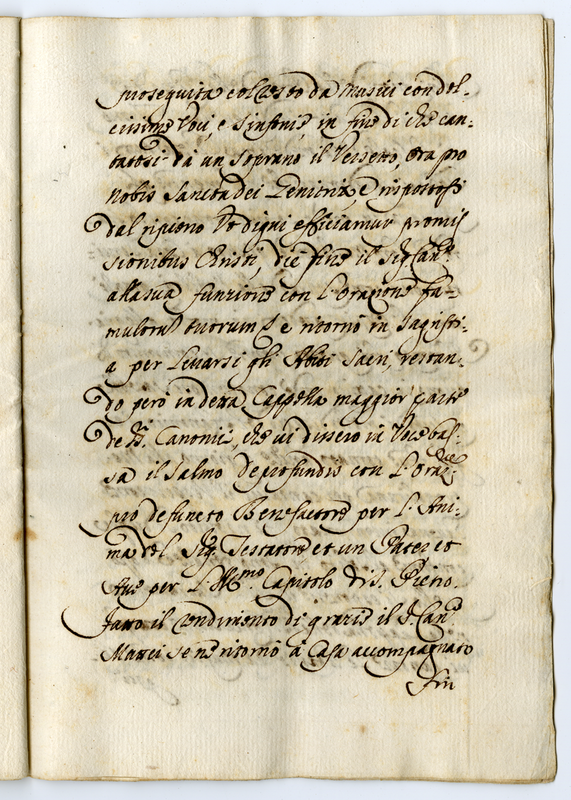 proseguita col resto da Musici con dol-
cissime Voci, e Sinfonie, in fine di che can-
tatosi da un Soprano il Versetto, Ora pro
Nobis Sancta dei Genitrix, e rispostosi
dal ripieno Vt digni efficiamur promis
sionibus Christi, die fine il Sig. Can.
alla sua funzione con l'Orazione fa-
mulorum tuorum & e ritornò in Sagristi-
a per Levarsi gli Abiti Sacri, restan-
do però in detta Cappella maggior parte
de SS. Canonici, che ui dissero in Voce bas-
sa il Salmo De profundis con l'Oraz.
pro defuncto Benefactore per l'Ani-
ma del Sig. Testatore et un Pater et
Aue per l'Ill.mo Capitolo di S. Pietro.
fatto il rendimento di grazie il S. Can.
Mattei se ne ritornò à Casa accompagnato